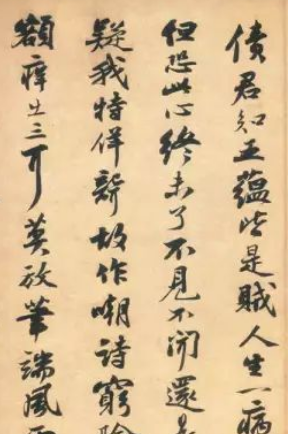 債君知五蘊皆是賊人生一病
但恐此心終未了不見不聞還是
疑我特佯聾故作嘲詩窮險
額痒出三耳莫放筆端風雨